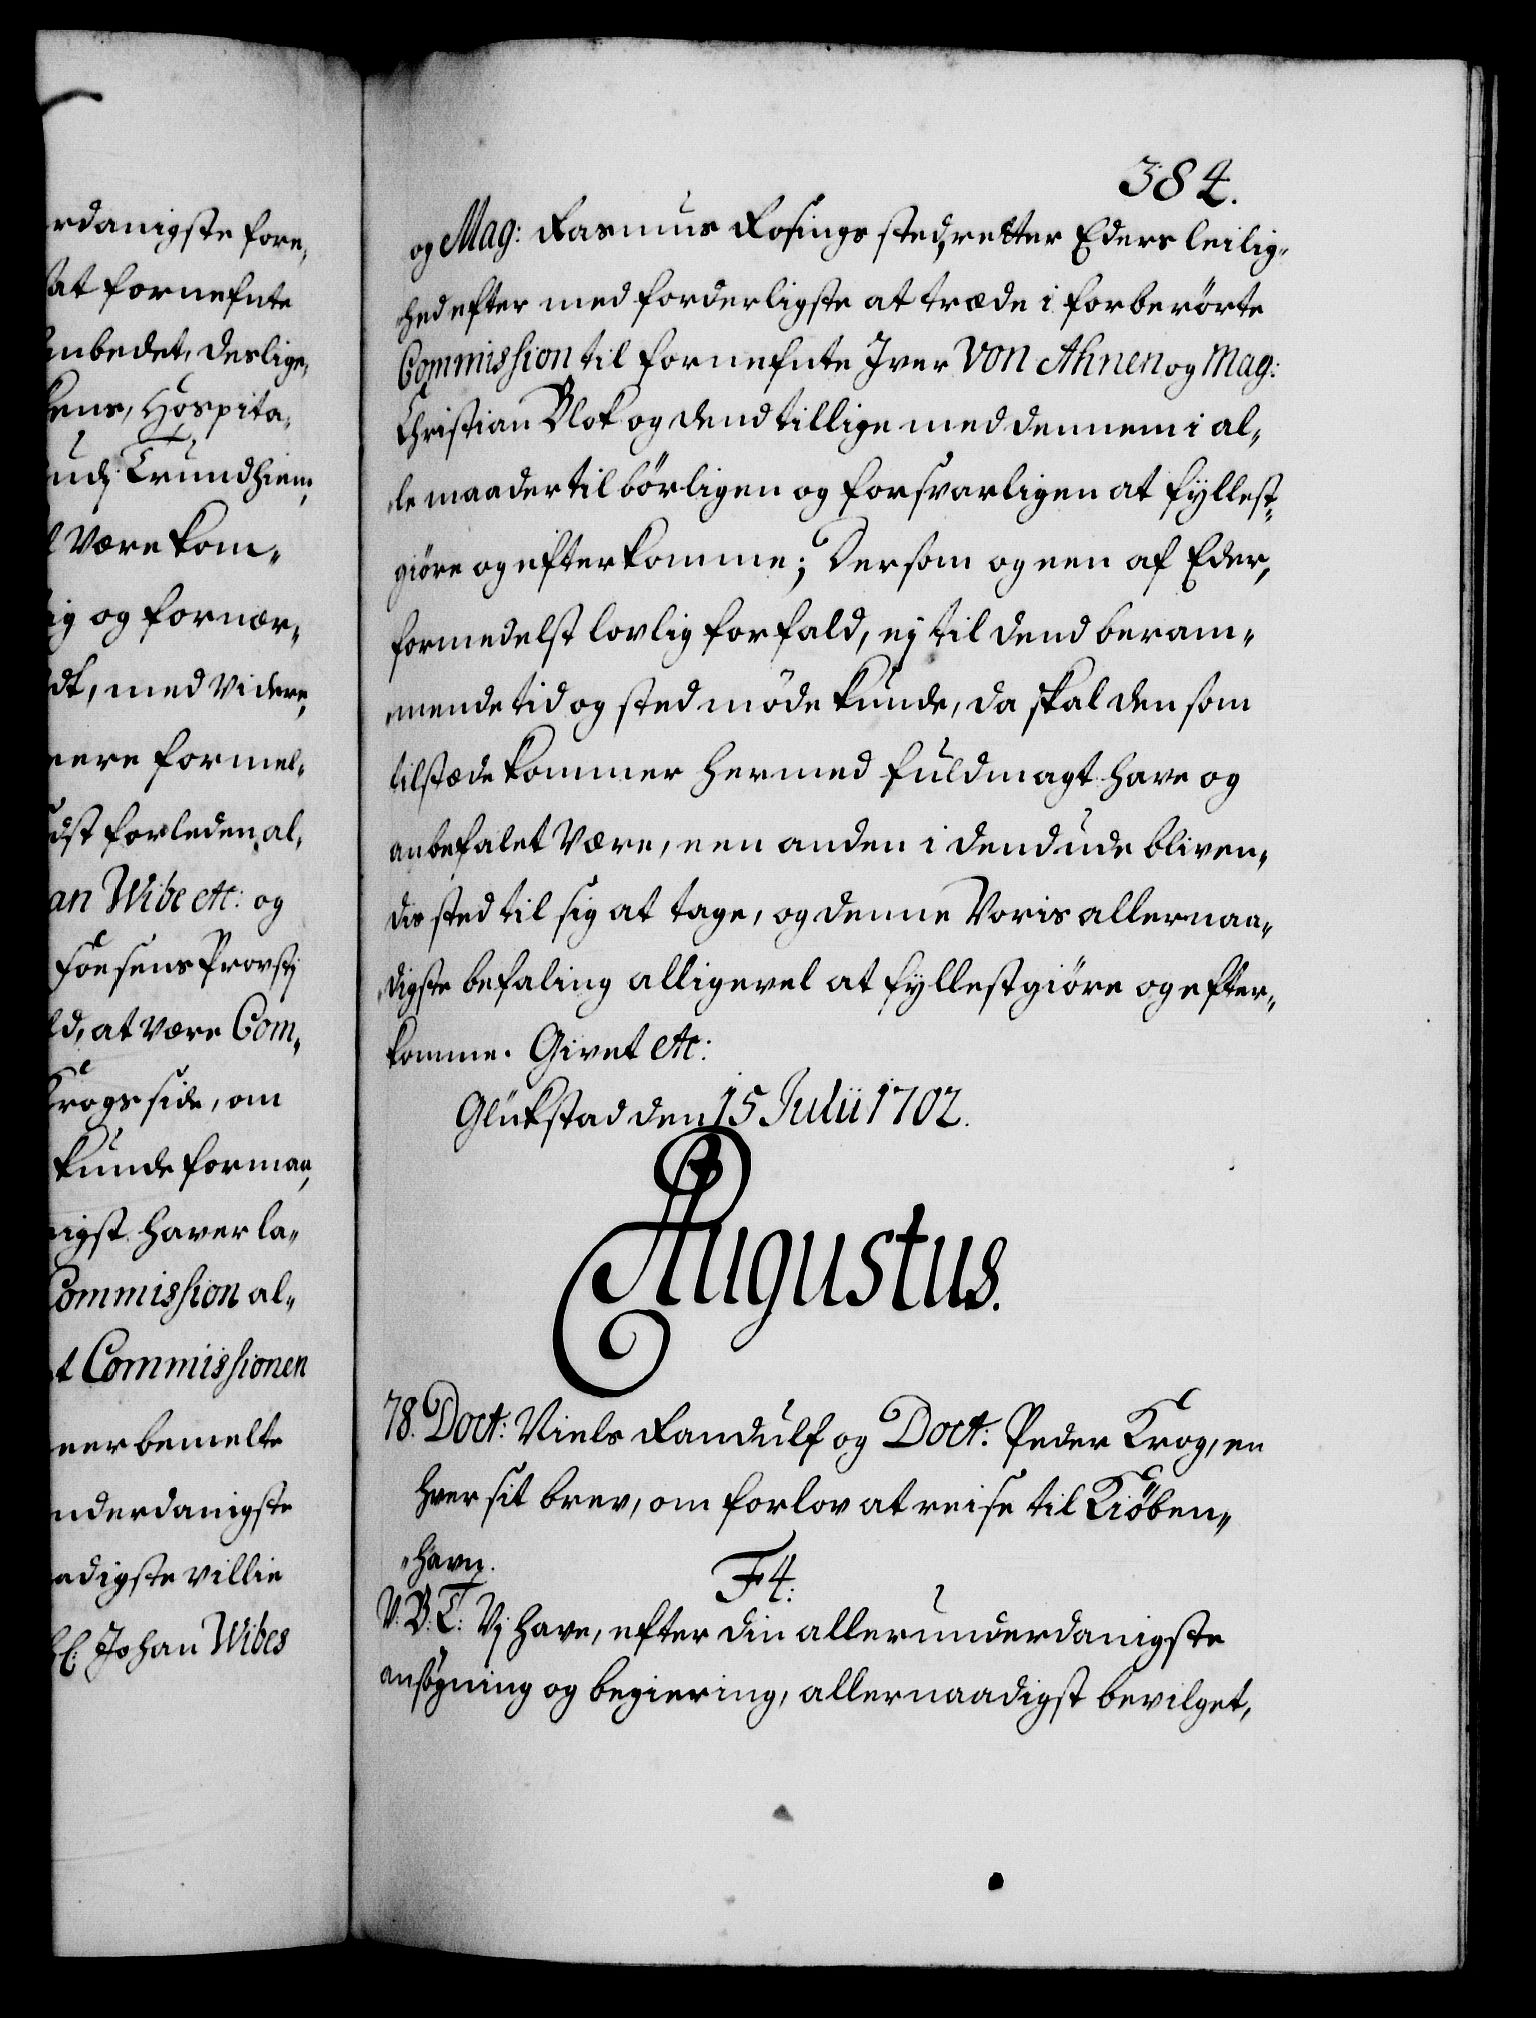 rdanigste fore,
at fornefnte
anbedet, deslige,
kens, Hospita,
Trundhiem,
Være kom,,
ig og fornær,,
dt, med videre,
eere formel,,
idst forleden al,
an Wibe etc: og
Foesens Provsti
ld, at være Com,
Krogs side, om
kunde formaa,
nigst haver la,,
Commission al,,
t Commissionen
eerbemelte
nderdanigste
adigste villie
Sl: Johan Wibes
384.
og Mag: Rasmus Rosings sted, retter Eders leilig,,
hed efter med forderligste at træde i forberörte
Commission til fornefnte Iver Von Ahnen og Mag:
Christian Blok og dend tillige med dennem i al,,
le maader tilbörligen og forsvarligen at fyllest,,
giöre og efterkomme; Dersom og een af Eder,
formedelst lovlig forfald, ej til dend beram,,
mende tid og sted möde kunde, da skal den som
tilstæde kommer hermed fuldmagt have og
anbefalet Være, een anden i dend ude bliven,,
des sted til sig at tage, og denne Voris allernaa,,
digste befaling alligevel at fyllestgiöre og efter,,
komme. Givet etc:
Glükstad den 15 Julii 1702.
Augustus.
78. Doct: Niels Randulf og Doct: Peder Krog, en
hver sit brev, om forlov at reise til Kiöben,,
,,havn.
F4:
V: B: T: Vj have, efter din allerunderdanigste
ansögning og begiering, allernaadigst bevilget,